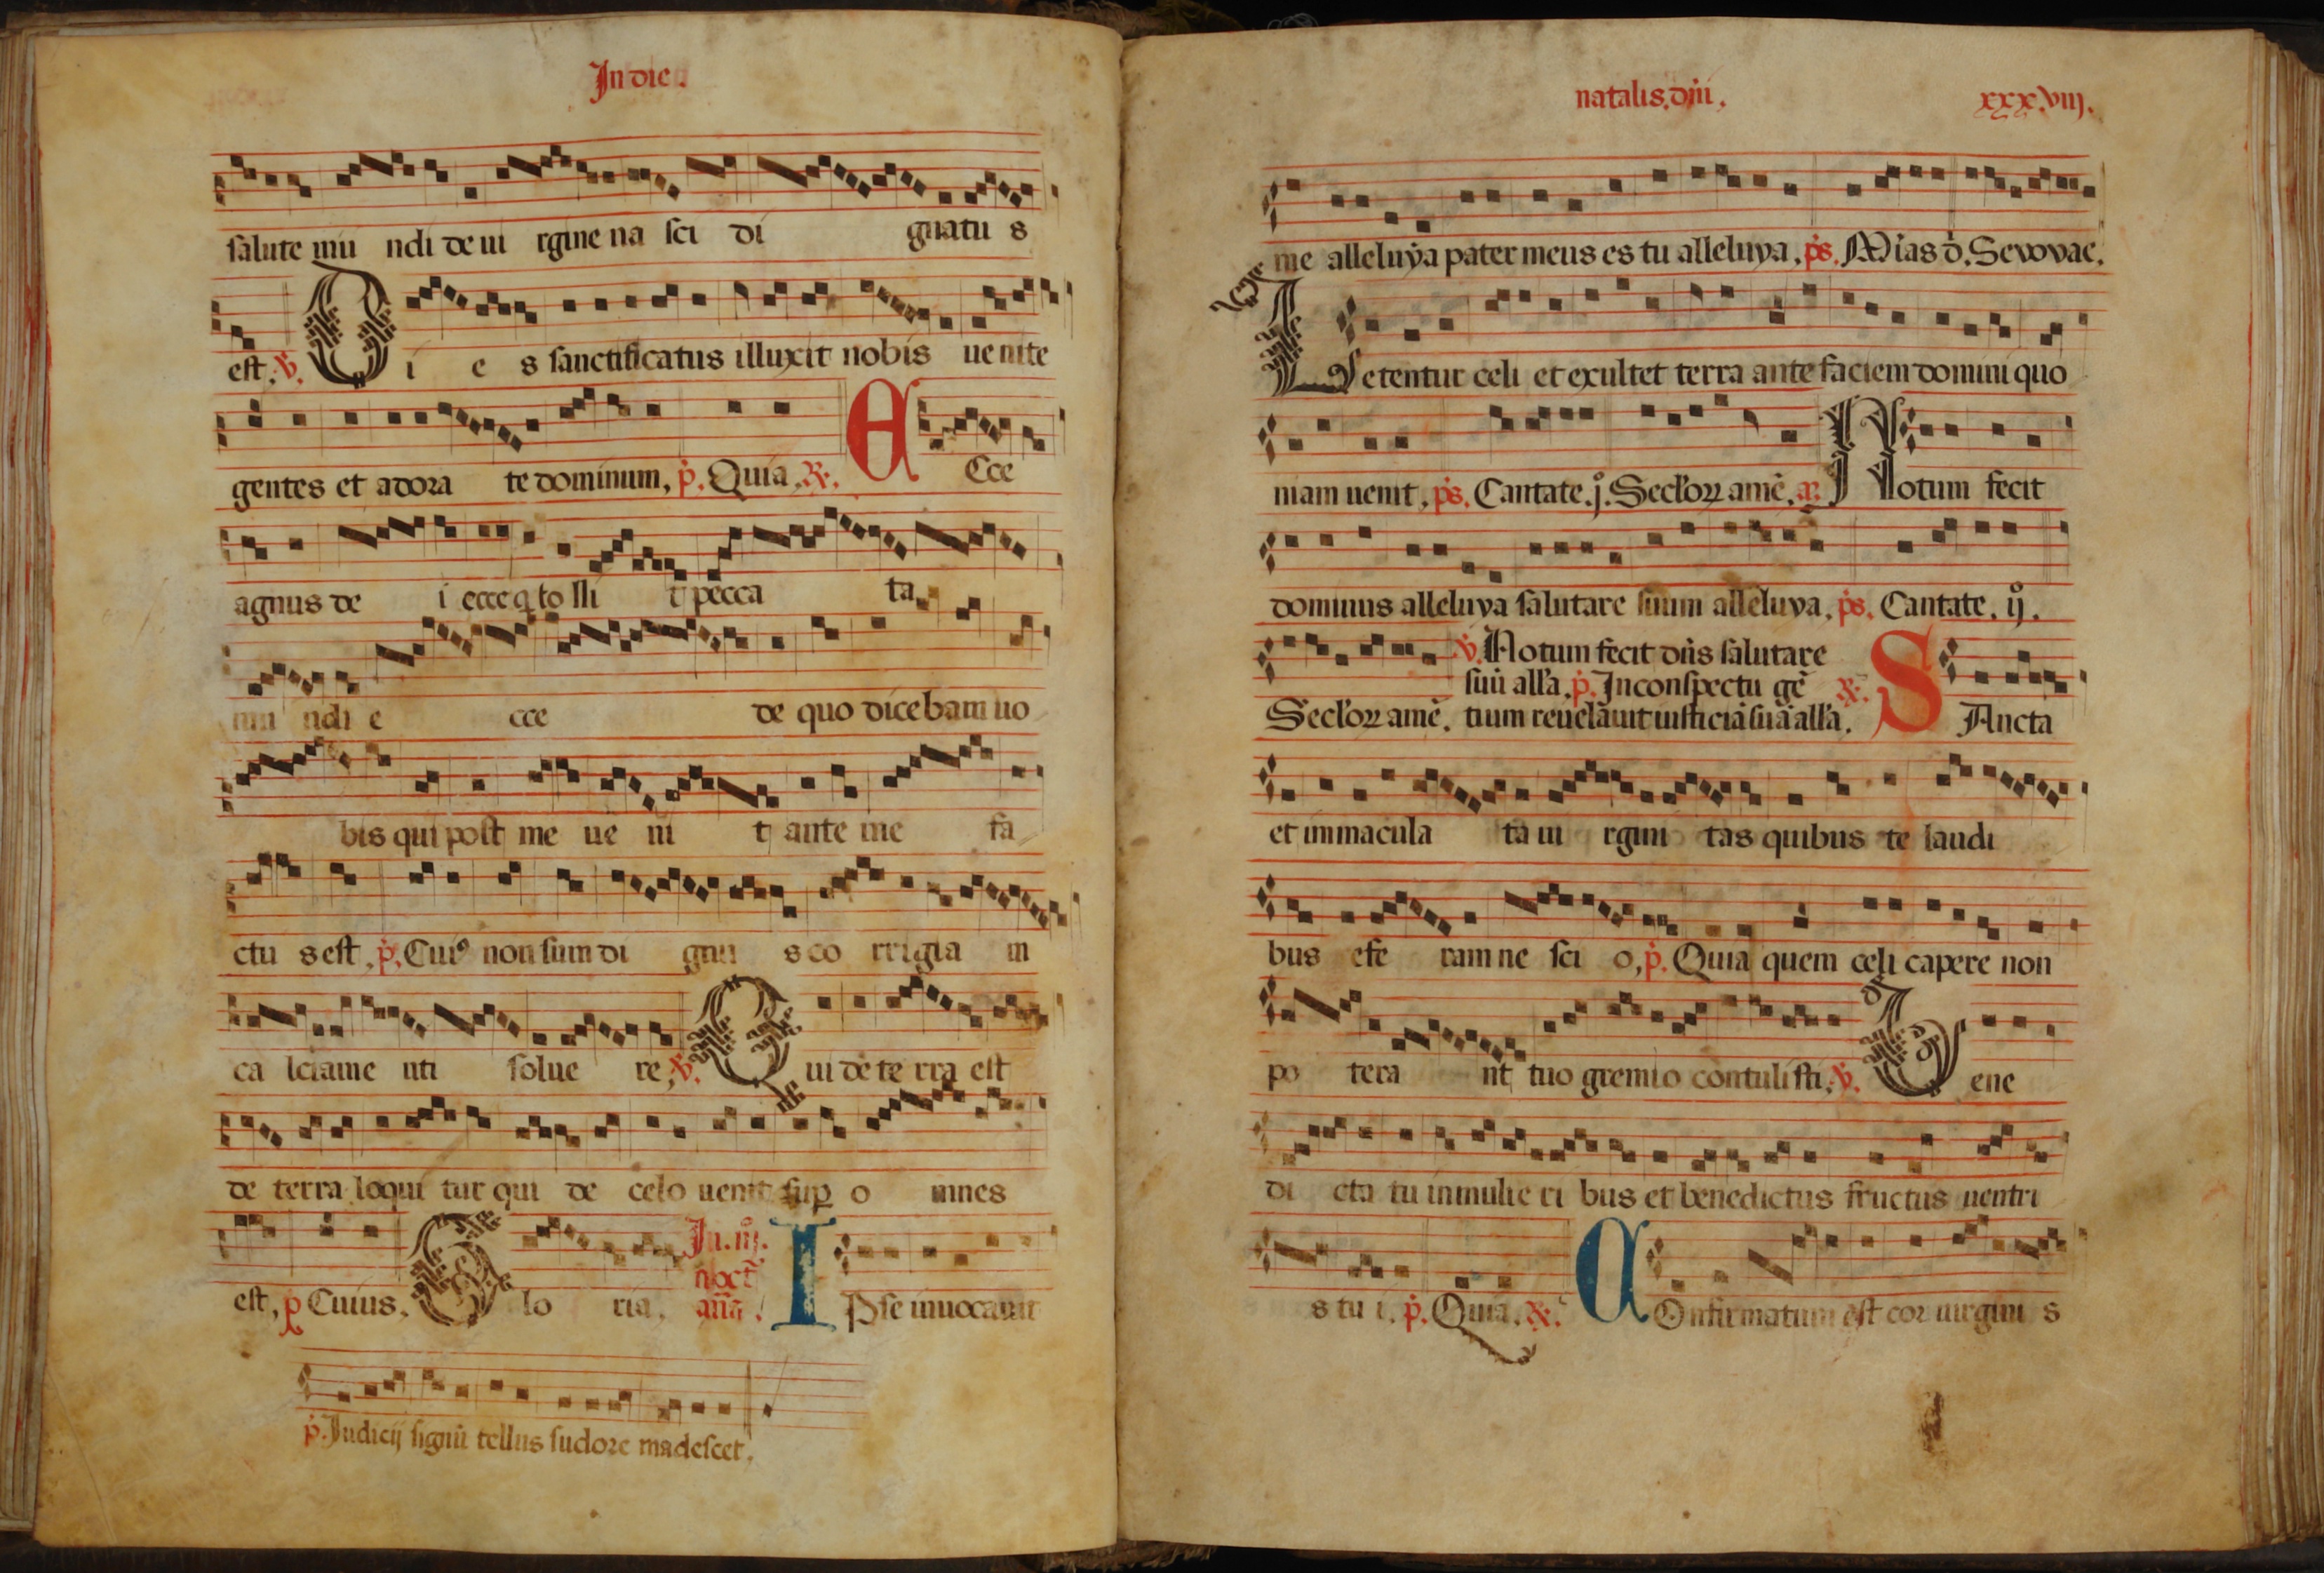 In die.
salute mu ndi de ui rgine na sci di gnatu s
est. v. D i e s sanctificatus illuxit nobis uenite
gentes et adora te dominum, p. Quia. R. E Cce
agnus de i ecce q to lli t pecca ta
mu ndi e cce de quo dicebam uo
bis qui post me ue ni t ante me fa
ctu s est, p. Cui⁹ non sum di gnu s co rrigia m
ca lciame nti solue re, v. Q ui de te rra est
de terra loqui tur qui de celo uenit sup o mnes
est, p Cuius. G lo ria. In. iij. noct̄ an̄a. I Pse inuocauit
p. Iudicij signū tellus sudore madescet.
natalis. dn̄i. xxx.viij.
me alleluya pater meus es tu alleluya, ps. Mīas d. Seuouae.
L etentur celi et exultet terra ante faciem domini quo
niam uenit, ps. Cantate. j. Seclorꝝ amē. a. N otum fecit
dominus alleluya salutare suum alleluya, ps. Cantate. ij.
v. Notum fecit dn̄s salutare
suū all'a. p. In conspectu gē R.
Seclorꝝ amē. tium reuelauit iusticiā suā all'a. S Ancta
et immacula ta ui rgini tas quibus te laudi
bus efe ram ne sci o, p. Quia quem celi capere non
po tera nt tuo gremio contulisti. v. B ene
di cta tu in mulie ri bus et benedictus fructus uentri
s tu i. p. Quia. R. C Onfirmatum est cor uirgini s